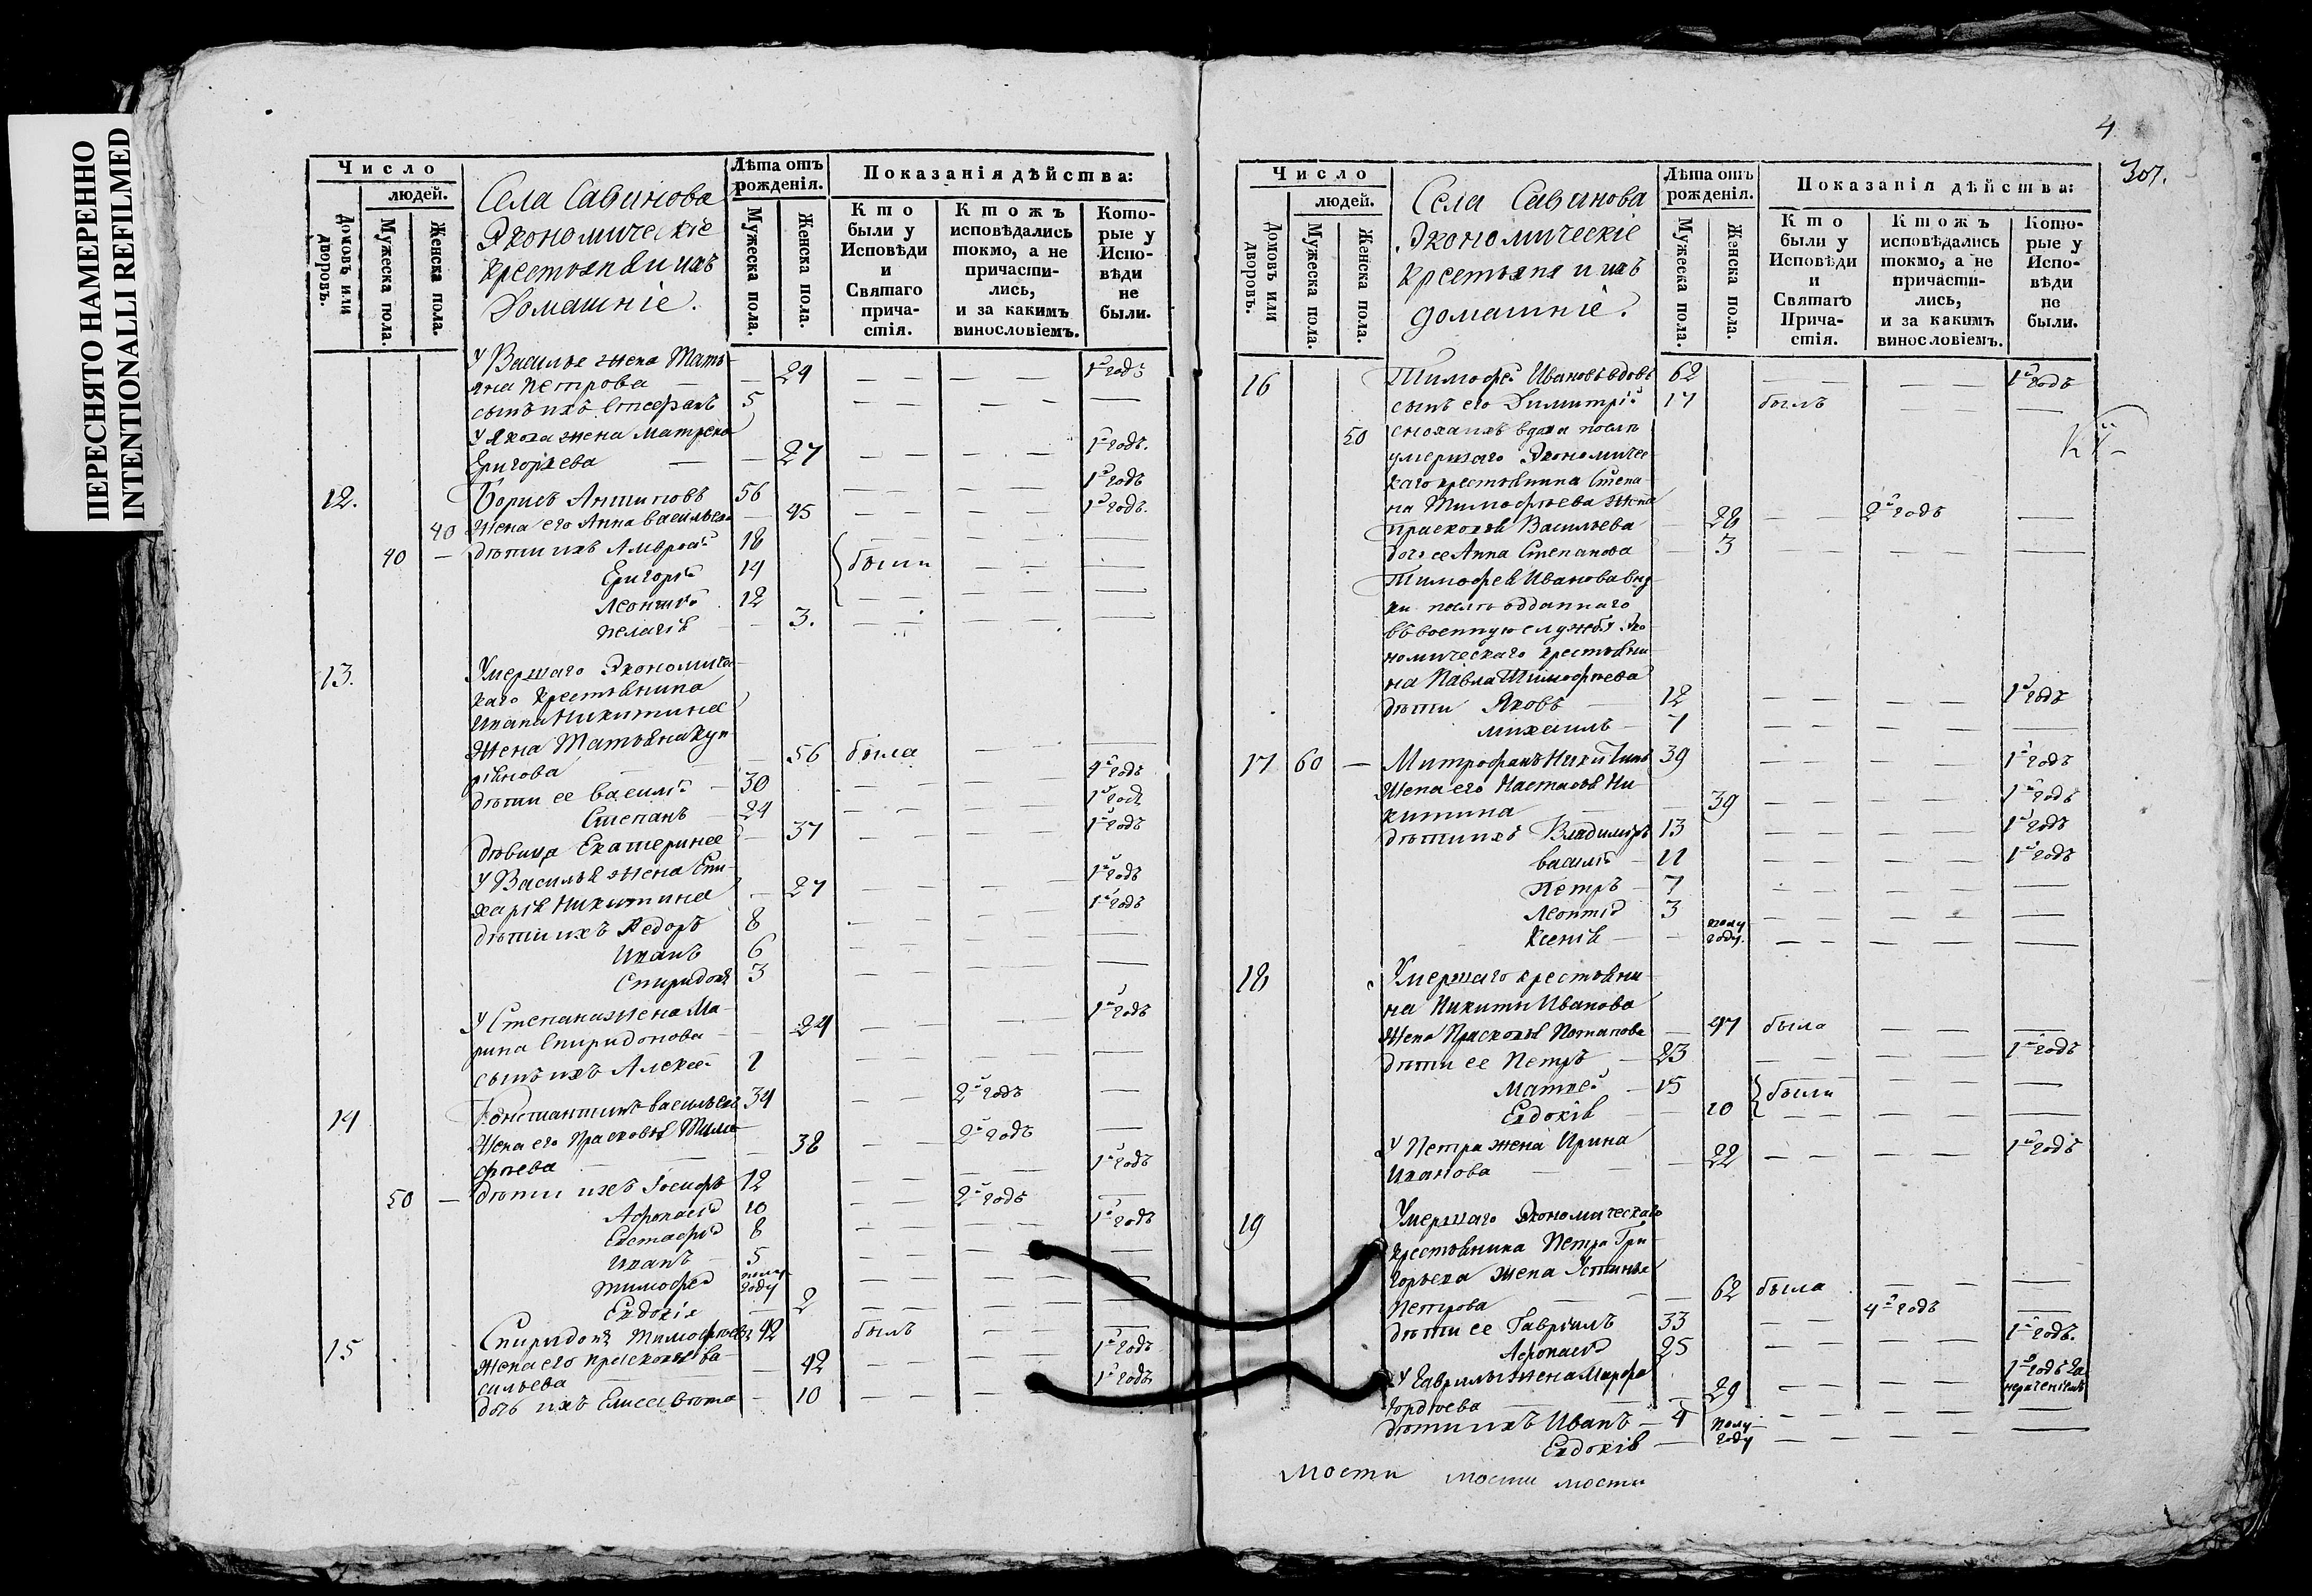 ПЕРЕСНЯТО НАМЕРЕННО
INTENTIONALLI REFILMED
Число
людей.
Домовъ или дворовъ.
Мужеска пола.
Женска пола.
Села Савинова
Экономическіе
крестьяня и ихъ
Домашніе.
Лѣта отъ рожденія.
Мужеска пола.
Женска пола.
Показанія дѣйства:
Кто были у Исповѣди и Святаго причастія.
Ктожъ исповѣдались токмо, а не причастились, и за какимъ винословіемъ.
Которые у Исповѣди не были.
У Василья жена Тать-
яна Петрова — — 29 1й годъ
сынъ ихъ Стефанъ 5
У Якова жена Матрена
Григорьева — — 27 1й годъ.
12. Борисъ Антиповъ 56 1й годъ
40 Жена его Анна Васильева — 45 1й годъ.
40 — дѣти ихъ Амвросій 18
Григорій 14 были
Леонтій 12
Пелагія — 3.
13. Умершаго Экономичес-
каго Крестьянина
Ивана Никитина
Жена Татьяна Куп-
ріянова — 56 была
дѣти ее Василій — 30 4й годъ
Степанъ — 24 1й годъ
дѣвица Екатерина — 37 1й годъ
У Василья жена Гли-
харія Никитина — 27 1й годъ
дѣти ихъ Федоръ 8 1й годъ
Иванъ 6
Спиридонъ 3
У Степана жена Ма-
рина Спиридонова — 24 1й годъ
сынъ ихъ Алексей 1
14 Константинъ Васильевъ 34 2й годъ
Жена его Прасковья Тимо-
фѣева — — 38 2й годъ
50 — дѣти ихъ Іосифъ 12 1й годъ
Афонасій 10 2й годъ
Евстафій 8 1й годъ
Иванъ 5
Тимофей полу году
Евдокія — 2
15 Спиридонъ Тимофѣевъ 42 былъ
Жена его Прасковья Ва-
сильева — — 42 1й годъ
дочь ихъ Елисавета — 10 1й годъ
4
307.
Число
людей.
Домовъ или дворовъ.
Мужеска пола.
Женска пола.
Села Савинова
Экономическіе
крестьяня и ихъ
домашніе.
Лѣта отъ рожденія.
Мужеска пола.
Женска пола.
Показанія дѣйства:
Кто были у Исповѣди и Святаго Причастія.
Ктожъ исповѣдались токмо, а не причастились, и за какимъ винословіемъ.
Которые у Исповѣди не были.
16 Тимофей Ивановъ вдовъ 62 1й годъ
сынъ его Димитрій 17 былъ
50 сноха ихъ вдова послѣ
умершаго Экономичес-
каго крестьянина Степа-
на Тимофѣева жена
Прасковья Васильева — 28 2й годъ
дочь ее Анна Степанова — 3
Тимофея Иванова вну-
ки послѣ отданнаго
въ военную службу Эко-
номическаго крестьяни-
на Павла Тимофѣева
дѣти Яковъ — 12 1й годъ
Михаилъ — 7
17 60 — Митрофанъ Никитинъ 39 1й годъ
Жена его Настасья Ни-
китина — 39 1й годъ
дѣти ихъ Владимиръ 13 1й годъ
Василій — 11 1й годъ
Петръ — 7
Леонтій 3
Ксенія — — полу году.
18 Умершаго крестьяни-
на Никиты Иванова
Жена Прасковья Потапова — 47 была
дѣти ее Петръ — 23 1й годъ
Матвей — 15
Евдокія — — 10 были
У Петра жена Ирина
Иванова — — 22 1й годъ
19 Умершаго Экономическаго
крестьянина Петра Гри-
горьева Жена Устинья
Петрова — — 62 была
дѣти ее Гавріилъ 33 4й годъ
Афонасій 25 1й годъ.
У Гаврилы жена Марфа
Гордѣева — — 29 1й годъ за нераченіемъ
дѣти ихъ Иванъ — 4
Евдокія — полу году
мости мости мости